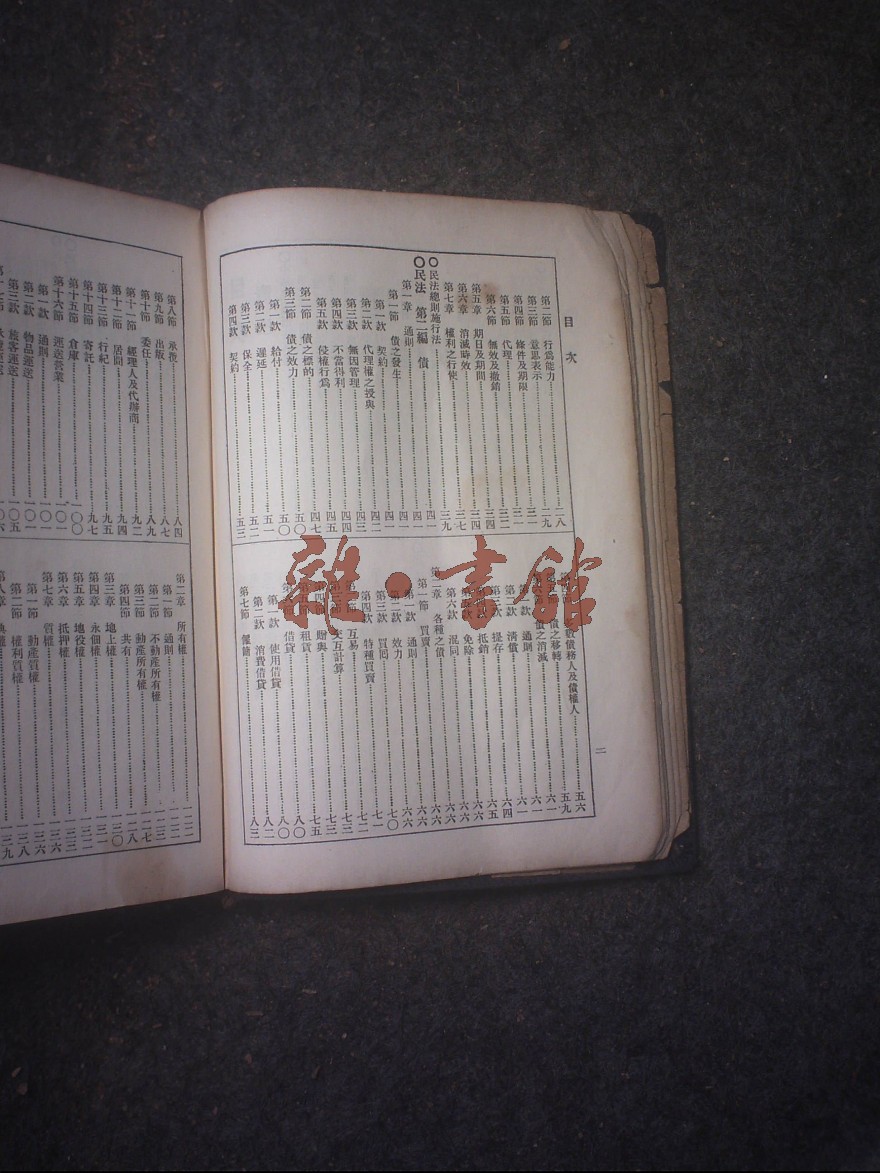 目次
第二節 行爲能力 二八
第三節 意思表示 二九
第四節 條件及期限 三一
第五節 代理 三二
第六節 無效及撤銷 三四
第五章 期日及期間 三四
第六章 消滅時效 三七
第七章 權利之行使 三九
〇民法總則施行法 四一
〇民法 第二編 債
第一章 通則 四一
第一節 債之發生 四一
第一款 契約 四一
第二款 代理權之授與 四二
第三款 無因管理 四三
第四款 不當得利 四四
第五款 侵權行爲 四五
第二節 債之標的 四七
第三節 債之效力 五〇
第一款 給付 五〇
第二款 遲延 五一
第三款 保全 五二
第四款 契約 五三
數債務人及債權人 五六
債之移轉 五九
債之消滅 六一
第一款 通則 六一
第二款 清償 六一
提存 六四
抵銷 六五
免除 六六
第六款 混同 六六
第二章 各種之債 六六
第一節 買賣 六六
第一款 通則 六六
第二款 效力 六六
第三款 買回 七〇
第四款 特種買賣 七一
互易 七二
交互計算 七三
贈與 七三
租賃 七五
借貸 八〇
第一款 使用借貸 八〇
第二款 消費借貸 八二
第七節 僱傭 八三
二
第八節 承攬 八四
第九節 出版 八七
第十節 委任 八九
第十一節 經理人及代辦商 九二
第十二節 居間 九四
第十三節 行紀 九五
第十四節 寄託 九七
第十五節 倉庫 一〇〇
第十六節 運送營業 一〇一
第一款 通則 一〇一
第二款 物品運送 一〇一
第三款 旅客運送
第二章 所有權
第一節 通則
第二節 不動產所有權
第三節 動產所有權
第四節 共有
第三章 地上權
第四章 永佃權
第五章 地役權
第六章 抵押權
第七章 質權
第一節 動產質權
第二節 權利質權
雜·書館